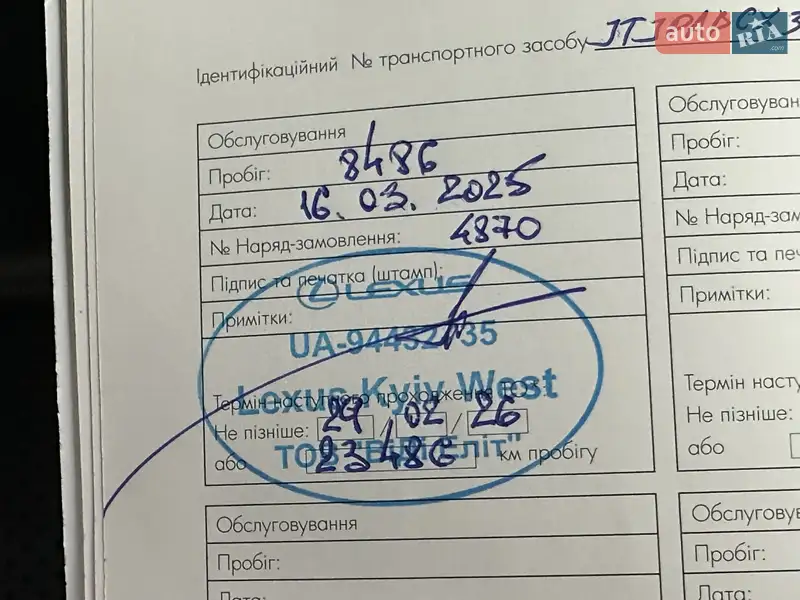 auto RIA .com
Ідентифікаційний № транспортного засобу JTJDABCX3
Обслуговування
Пробіг: 8486
Дата: 16. 03. 2025
№ Наряд-замовлення: 4870
Підпис та печатка (штамп):
LEXUS
Примітки:
Lexus Kyiv West
Термін наступного проходження ТО:
Не пізніше: 29 / 02 / 26
ТОВ
або 23486 км пробігу
Обслуговування
Пробіг:
Дата:
Обслуговуван
Пробіг:
Дата:
№ Наряд-зам
Підпис та печ
Примітки:
Термін насту
Не пізніше:
або
Обслуговув
Пробіг:
Дата: